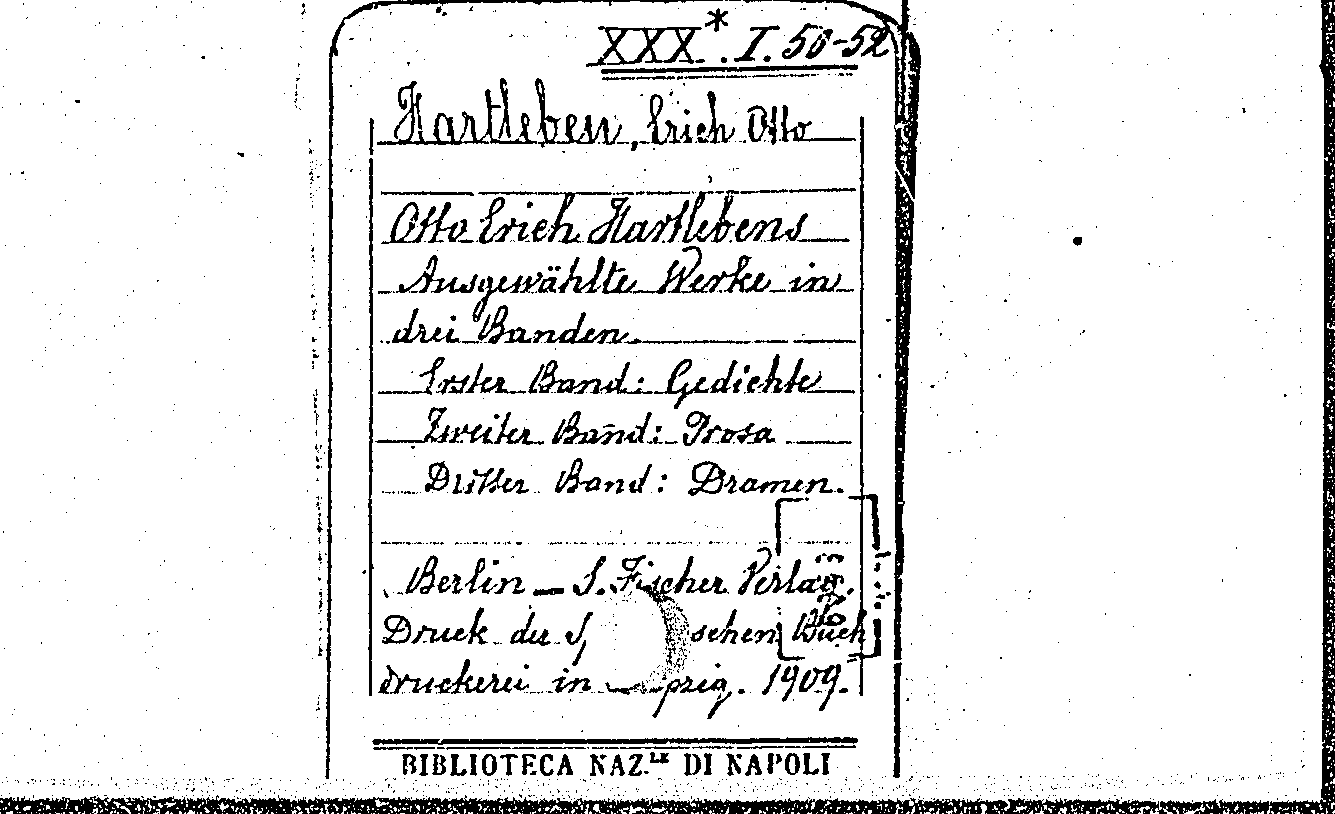 XXX*. I. 50-52
Hartleben, Erich Otto
Otto Erich Hartlebens
Ausgewählte Werke in
drei Banden.
Erster Band: Gedichte
Zweiter Band: Prosa
Dritter Band: Dramen.
Berlin – S. Fischer Verlag.
Druck der schen Buch
druckerei in pzig. 1909.
BIBLIOTECA NAZ.LE DI NAPOLI